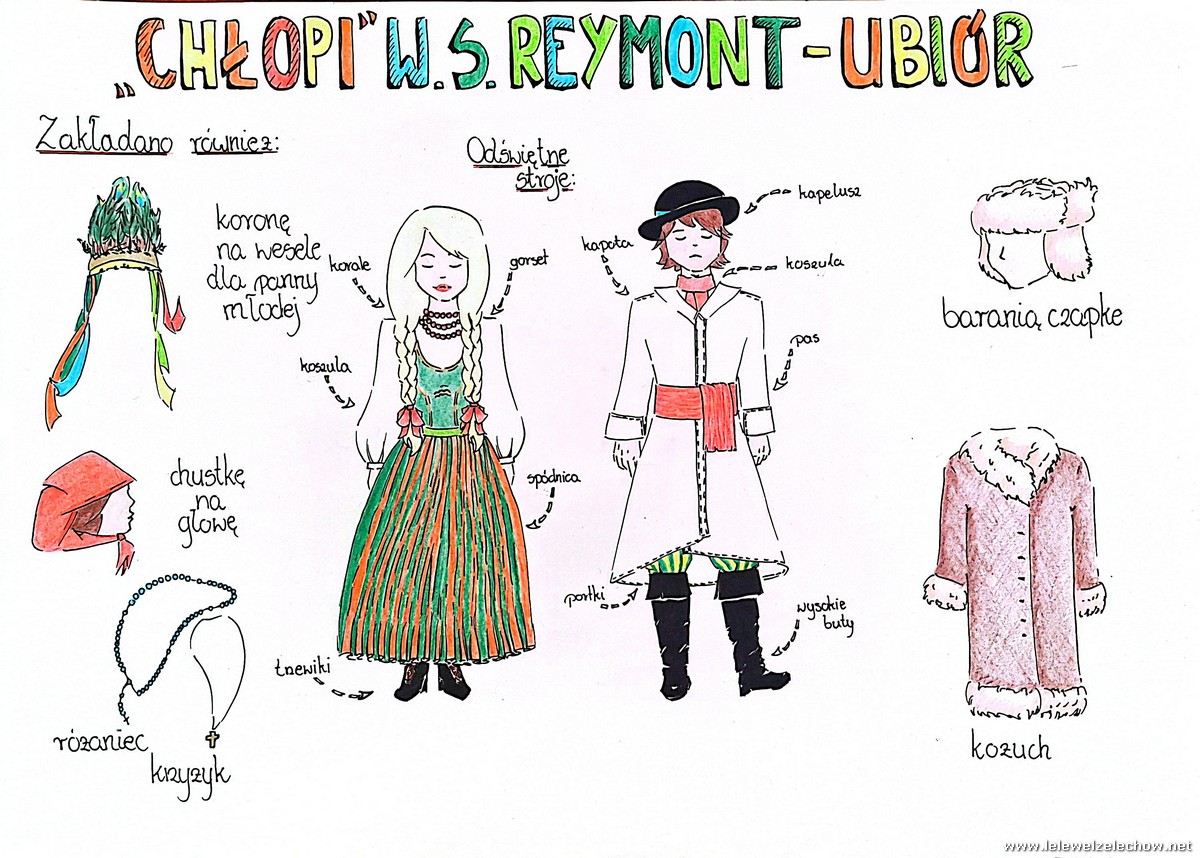 „CHŁOPI” W.S. REYMONT - UBIÓR
Zakładano również:
koronę
na wesele
dla panny
młodej
chustkę
na
głowę
różaniec
krzyżyk
Odświętne
stroje:
korale
gorset
koszula
spódnica
trzewiki
kapelusz
kapota
koszula
pas
portki
wysokie
buty
baranią czapkę
kożuch
www.lelewelzelechow.net